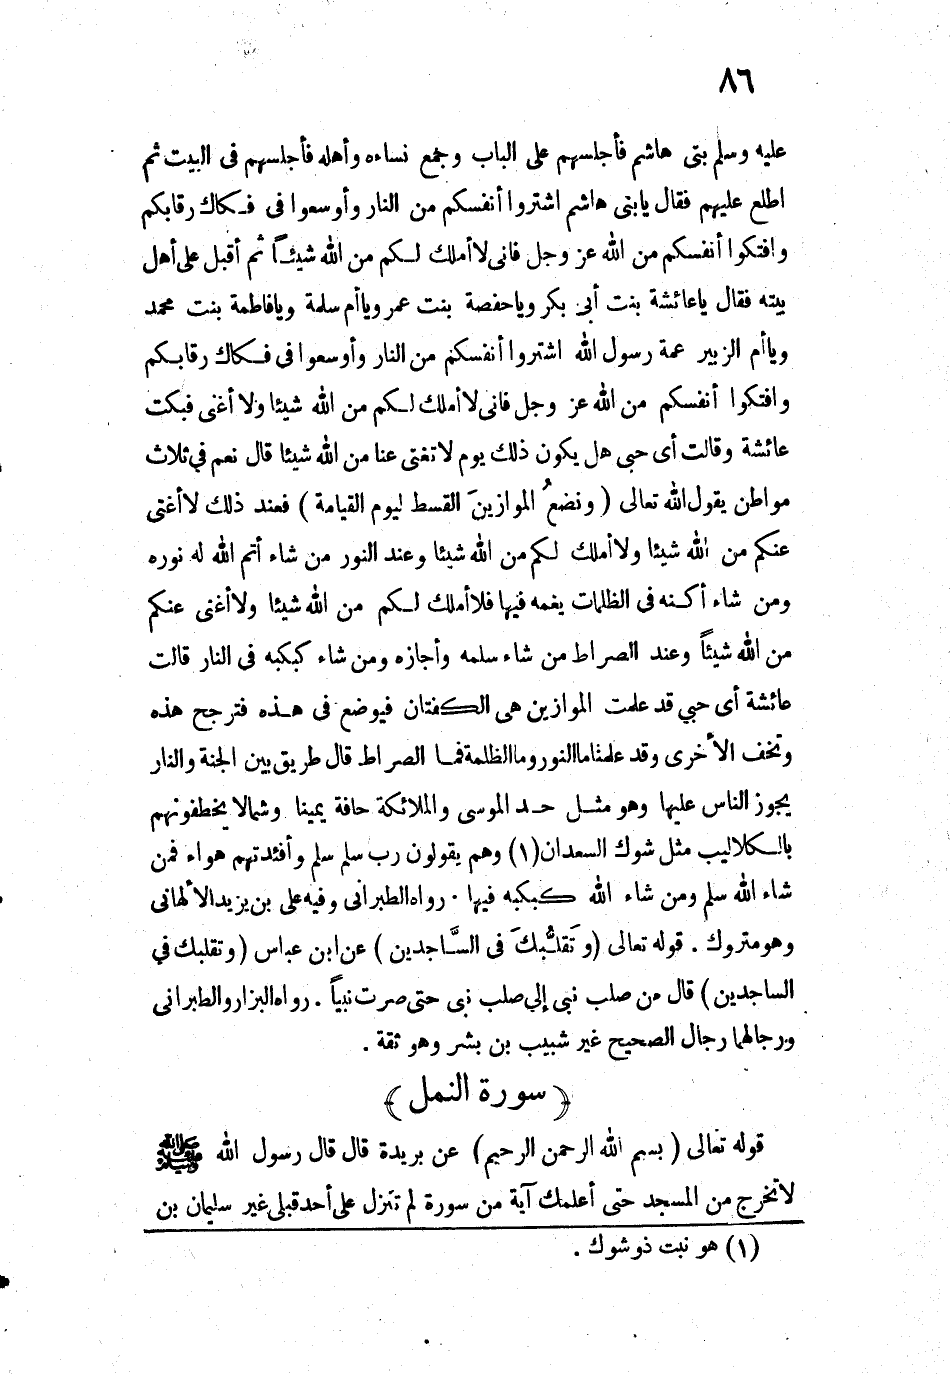 ٨٦
عليه وسلم بنى هاشم فأجلسهم على الباب وجمع نساءه وأهله فأجلسهم فى البيت ثم
اطلع عليهم فقال يابنى هاشم اشتروا أنفسكم من النار وأوسعوا فى فكاك رقابكم
وافتكوا أنفسكم من الله عز وجل فانى لاأملك لكم من الله شيئاً ثم أقبل على أهل
بيته فقال ياعائشة بنت أبى بكر وياحفصة بنت عمر وياأم سلمة ويافاطمة بنت محمد
وياأم الزبير عمة رسول الله اشتروا أنفسكم من النار وأوسعوا فى فكاك رقابكم
وافتكوا أنفسكم من الله عز وجل فانى لاأملك لكم من الله شيئا ولا أغنى فبكت
عائشة وقالت أى حبى هل يكون ذلك يوم لاتغنى عنا من الله شيئا قال نعم في ثلاث
مواطن يقول الله تعالى ( ونضعُ الموازينَ القسط ليوم القيامة ) فعند ذلك لاأغنى
عنكم من الله شيئا ولاأملك لكم من الله شيئا وعند النور من شاء أتم الله له نوره
ومن شاء أكنه فى الظلمات يغمه فيها فلاأملك لكم من الله شيئا ولاأغنى عنكم
من الله شيئاً وعند الصراط من شاء سلمه وأجازه ومن شاء كبكبه فى النار قالت
عائشة أى حبي قد علمت الموازين هى الكفتان فيوضع فى هذه فترجح هذه
وتخف الأخرى وقد علمنا ماالنور وماالظلمة فما الصراط قال طريق بين الجنة والنار
يجوز الناس عليها وهو مثل حد الموسى والملائكة حافة يمينا وشمالا يخطفونهم
بالكلاليب مثل شوك السعدان(١) وهم يقولون رب سلم سلم وأفئدتهم هواء فمن
شاء الله سلم ومن شاء الله كبكبه فيها . رواه الطبرانى وفيه على بن يزيد الألهانى
وهو متروك . قوله تعالى (وَتَقلُّبكَ فى السَّاجدين ) عن ابن عباس (وتقلبك في
الساجدين) قال من صلب نبى إلى صلب نبى حتى صرت نبياً . رواه البزار والطبرانى
ورجالهما رجال الصحيح غير شبيب بن بشر وهو ثقة .
﴿ سورة النمل ﴾
قوله تعالى ( بسم الله الرحمن الرحيم ) عن بريدة قال قال رسول الله ﷺ
لاتخرج من المسجد حتى أعلمك آية من سورة لم تنزل على أحد قبلى غير سليمان بن
(١) هو نبت ذو شوك .